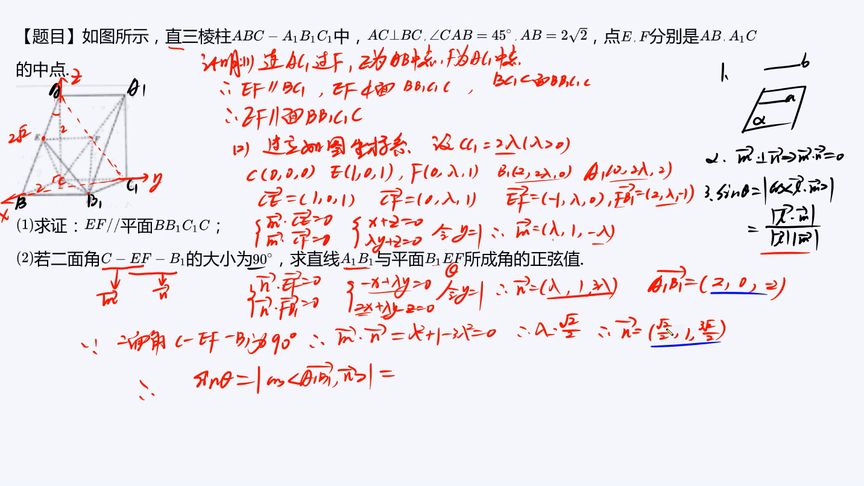 【题目】如图所示，直三棱柱ABC − A₁B₁C₁中，AC⊥BC，∠CAB = 45°，AB = 2√2，点E、F分别是AB、A₁C
的中点.
(1)求证：EF//平面BB₁C₁C；
(2)若二面角C − EF − B₁的大小为90°，求直线A₁B₁与平面B₁EF所成角的正弦值.
A1
Z
2√2
E
F
2
C
C1
y
x
B
B1
连AC1过F, E为AB中点, F为AC1中点.
∴ EF∥BC1, EF⊄面BB1C1C, BC1⊂面BB1C1C
∴ EF∥面BB1C1C
(2) 建立如图坐标系. 设CC1=2λ(λ>0)
C(0,0,0) E(1,0,1), F(0,λ,1) B1(2,2λ,0) A1(0,2λ,2)
CE=(1,0,1) CF=(0,λ,1) EF=(-1,λ,0), FB1=(2,λ,-1)
{ m·CE=0 m·CF=0 { x+z=0 λy+z=0 令y=1 ∴ m=(λ,1,-λ)
m
n
{ n·EF=0 n·FB1=0 { -x+λy=0 2x+λy-z=0 令y=1 ∴ n=(λ,1,3λ) A1B1=(2,0,2)
∵ 二面角C-EF-B1为90° ∴ m·n=λ²+1-3λ²=0 ∴ λ=√2/2 ∴ n=(√2/2,1,3√2/2)
∴ sinθ=|cos<A1B1,n>|=
1.
b
a
α
2. m⊥n⇒m·n=0
3. sinθ=|cos<l·m>|
=|l·m|/|l||m|